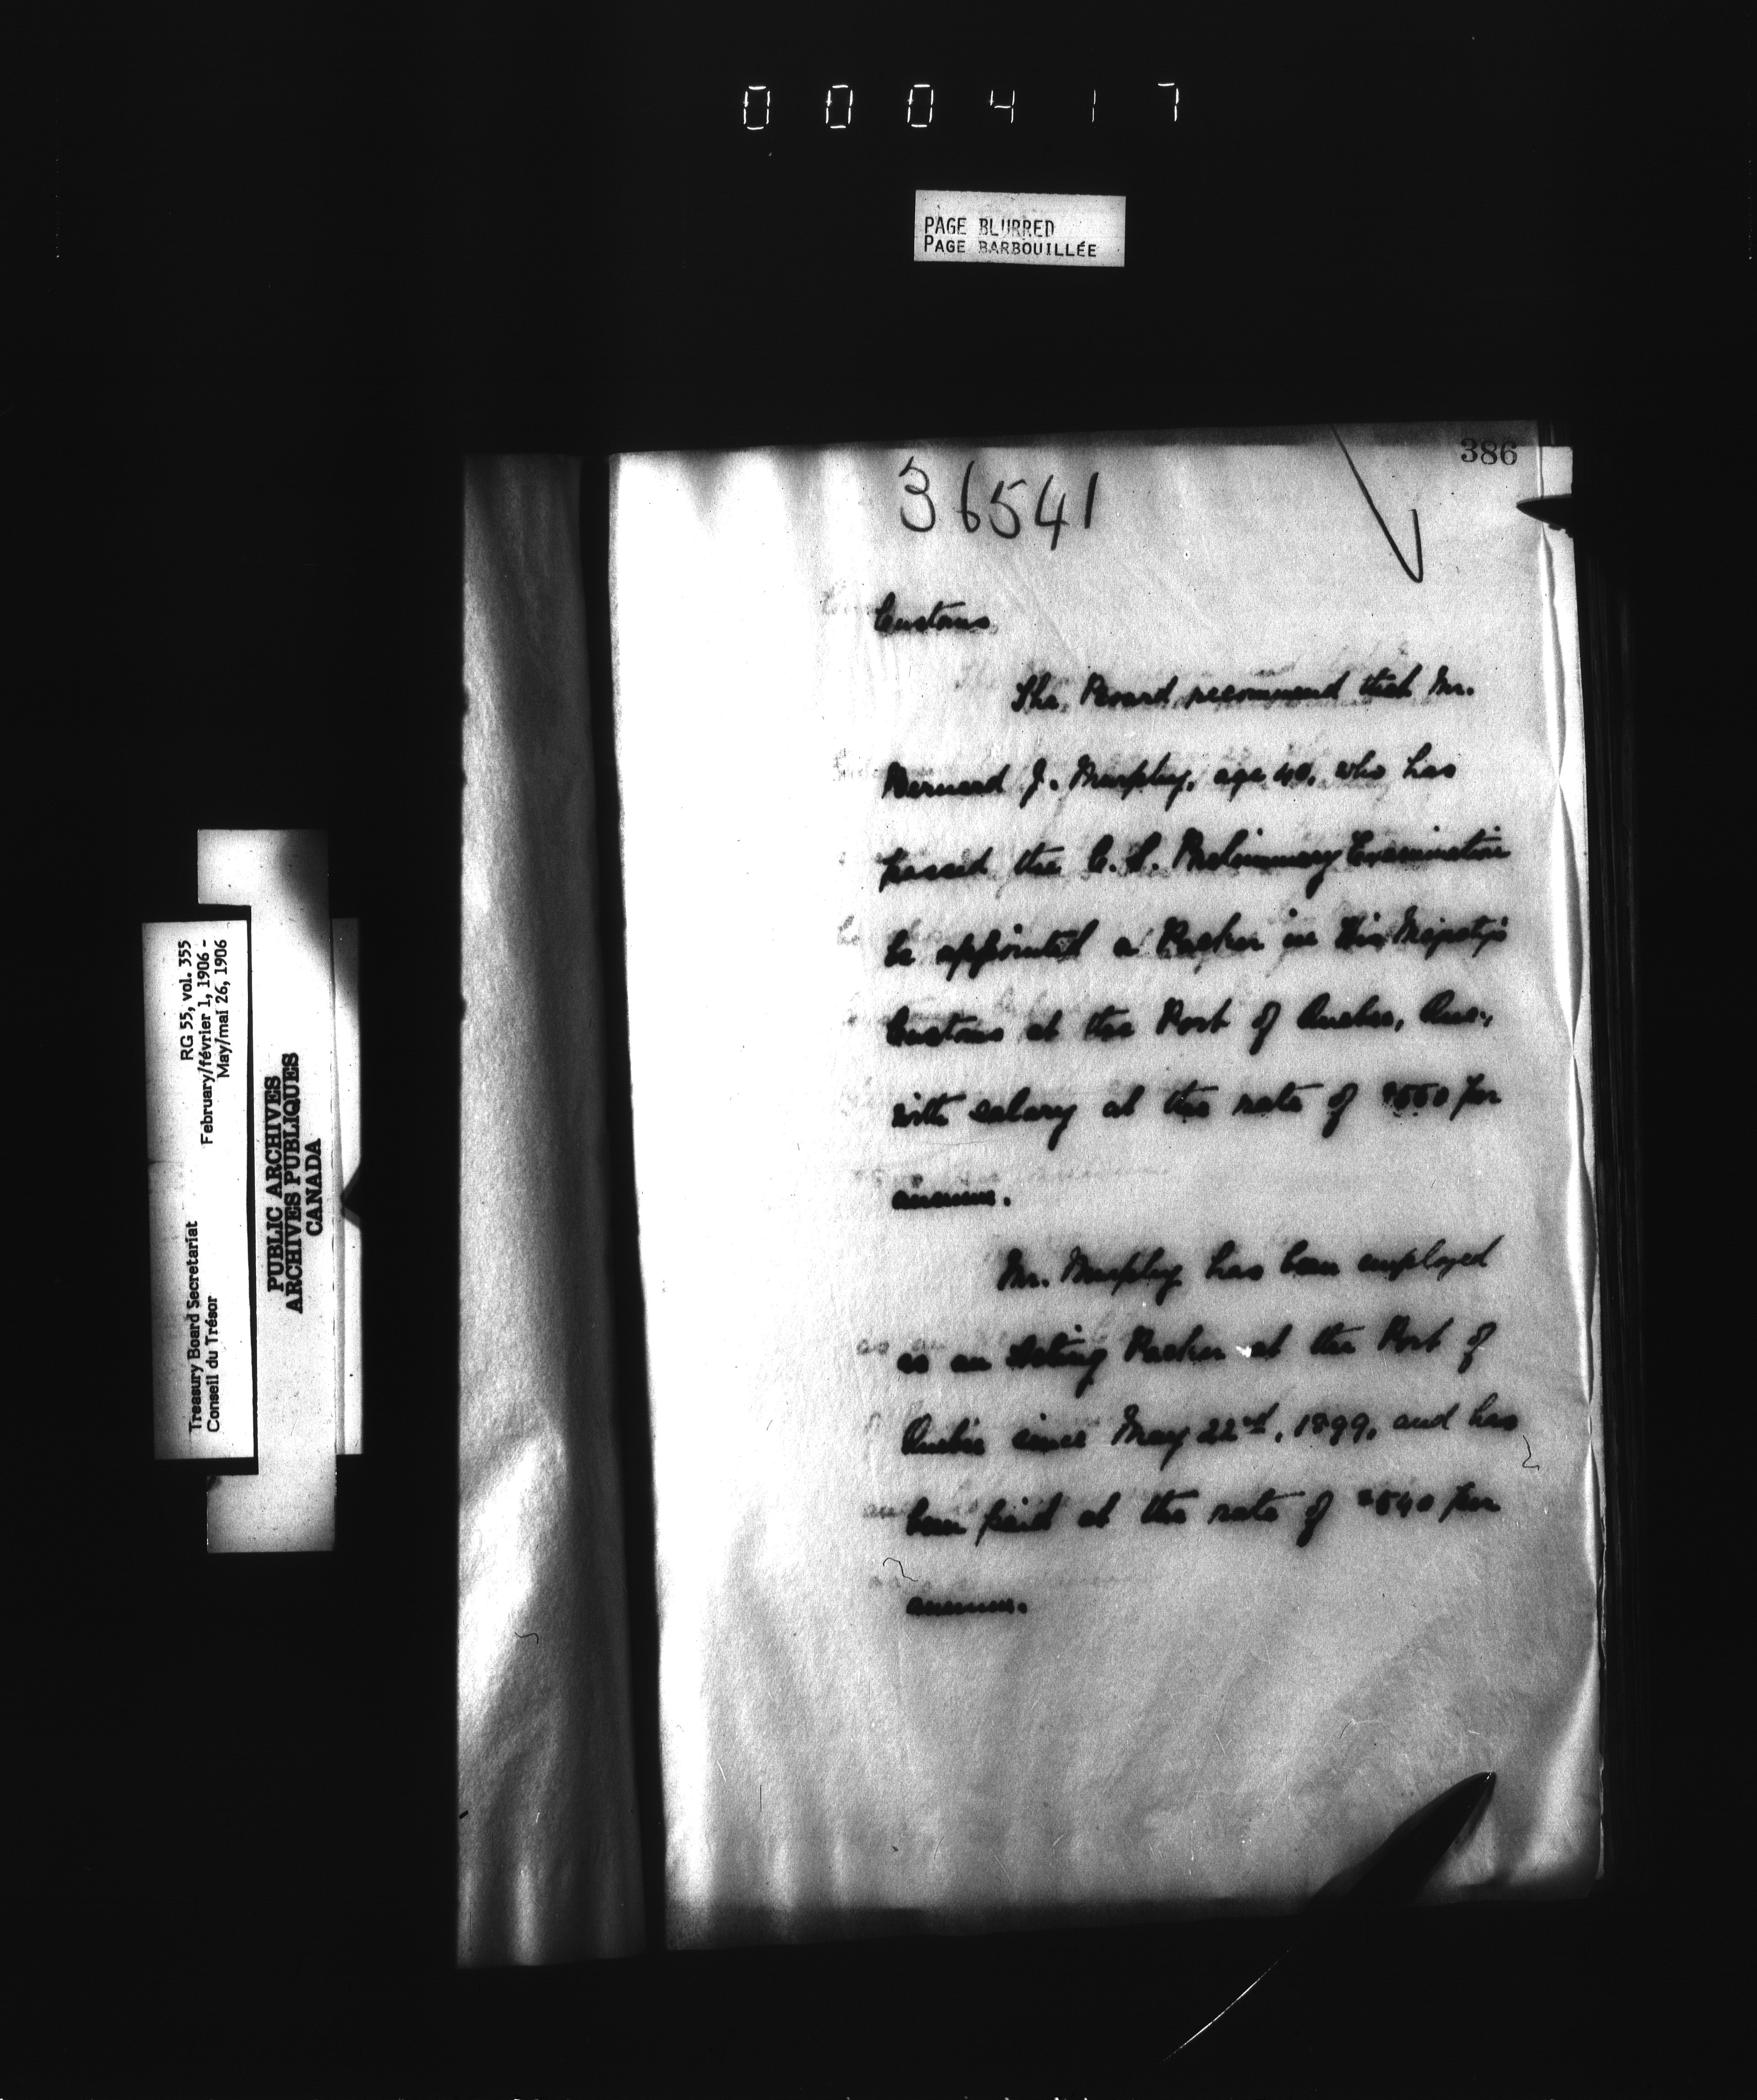 000417
PAGE BLURRED
PAGE BARBOUILLÉE
386
36541
Customs
The Board recommend that Mr.
Bernard J. Murphy, age 40, who has
passed the C. S. Preliminary Examination
be appointed a Packer in His Majesty's
Customs at the Port of Quebec, Que.,
with salary at the rate of per
annum.
Mr. Murphy has been employed
as an Acting Packer at the Port of
Quebec since May 22nd, 1899, and has
been paid at the rate of $540 per
annum.
RG 55, vol. 355
February/février 1, 1906 -
May/mai 26, 1906
Treasury Board Secretariat
Conseil du Trésor
PUBLIC ARCHIVES
ARCHIVES PUBLIQUES
CANADA